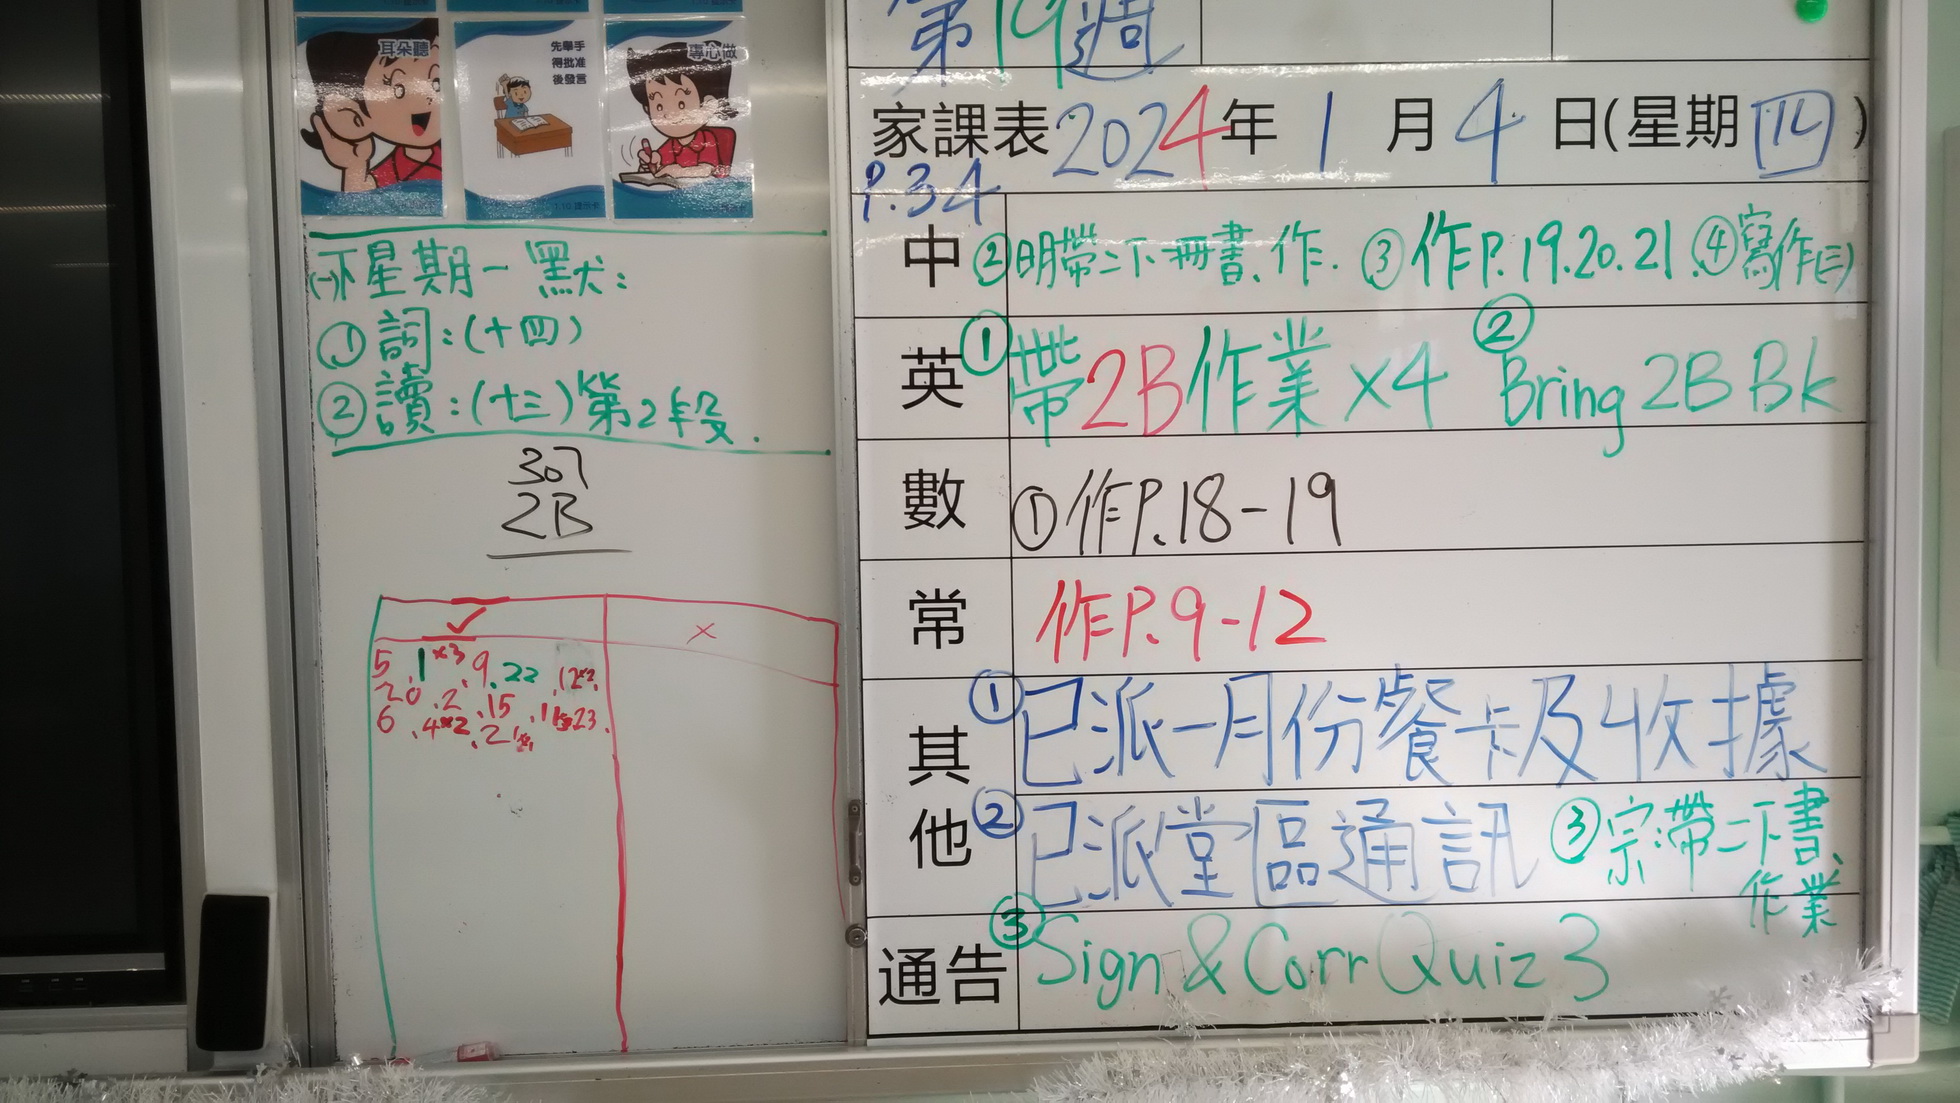 耳朵聽
先舉手
得批准
後發言
專心做
(一)下星期一默：
① 詞：(十四)
② 讀：(十三) 第2段.
307
2B
✓ ×
5 .1 ×3 .9 .22 .12
20 .2 .15 .23.
6 .4×2 .21
第19週
家課表 2024年 1月 4日(星期四)
P.34
中 ②明帶二下冊書、作. ③作P.19.20.21. ④寫作(三)
英 ①帶2B作業×4 ②Bring 2B Bk
數 ①作P.18-19
常 作P.9-12
其他 ①已派一月份餐卡及收據
②已派堂區通訊 ③宗:帶二下書、作業
通告 ③Sign & Corr Quiz 3